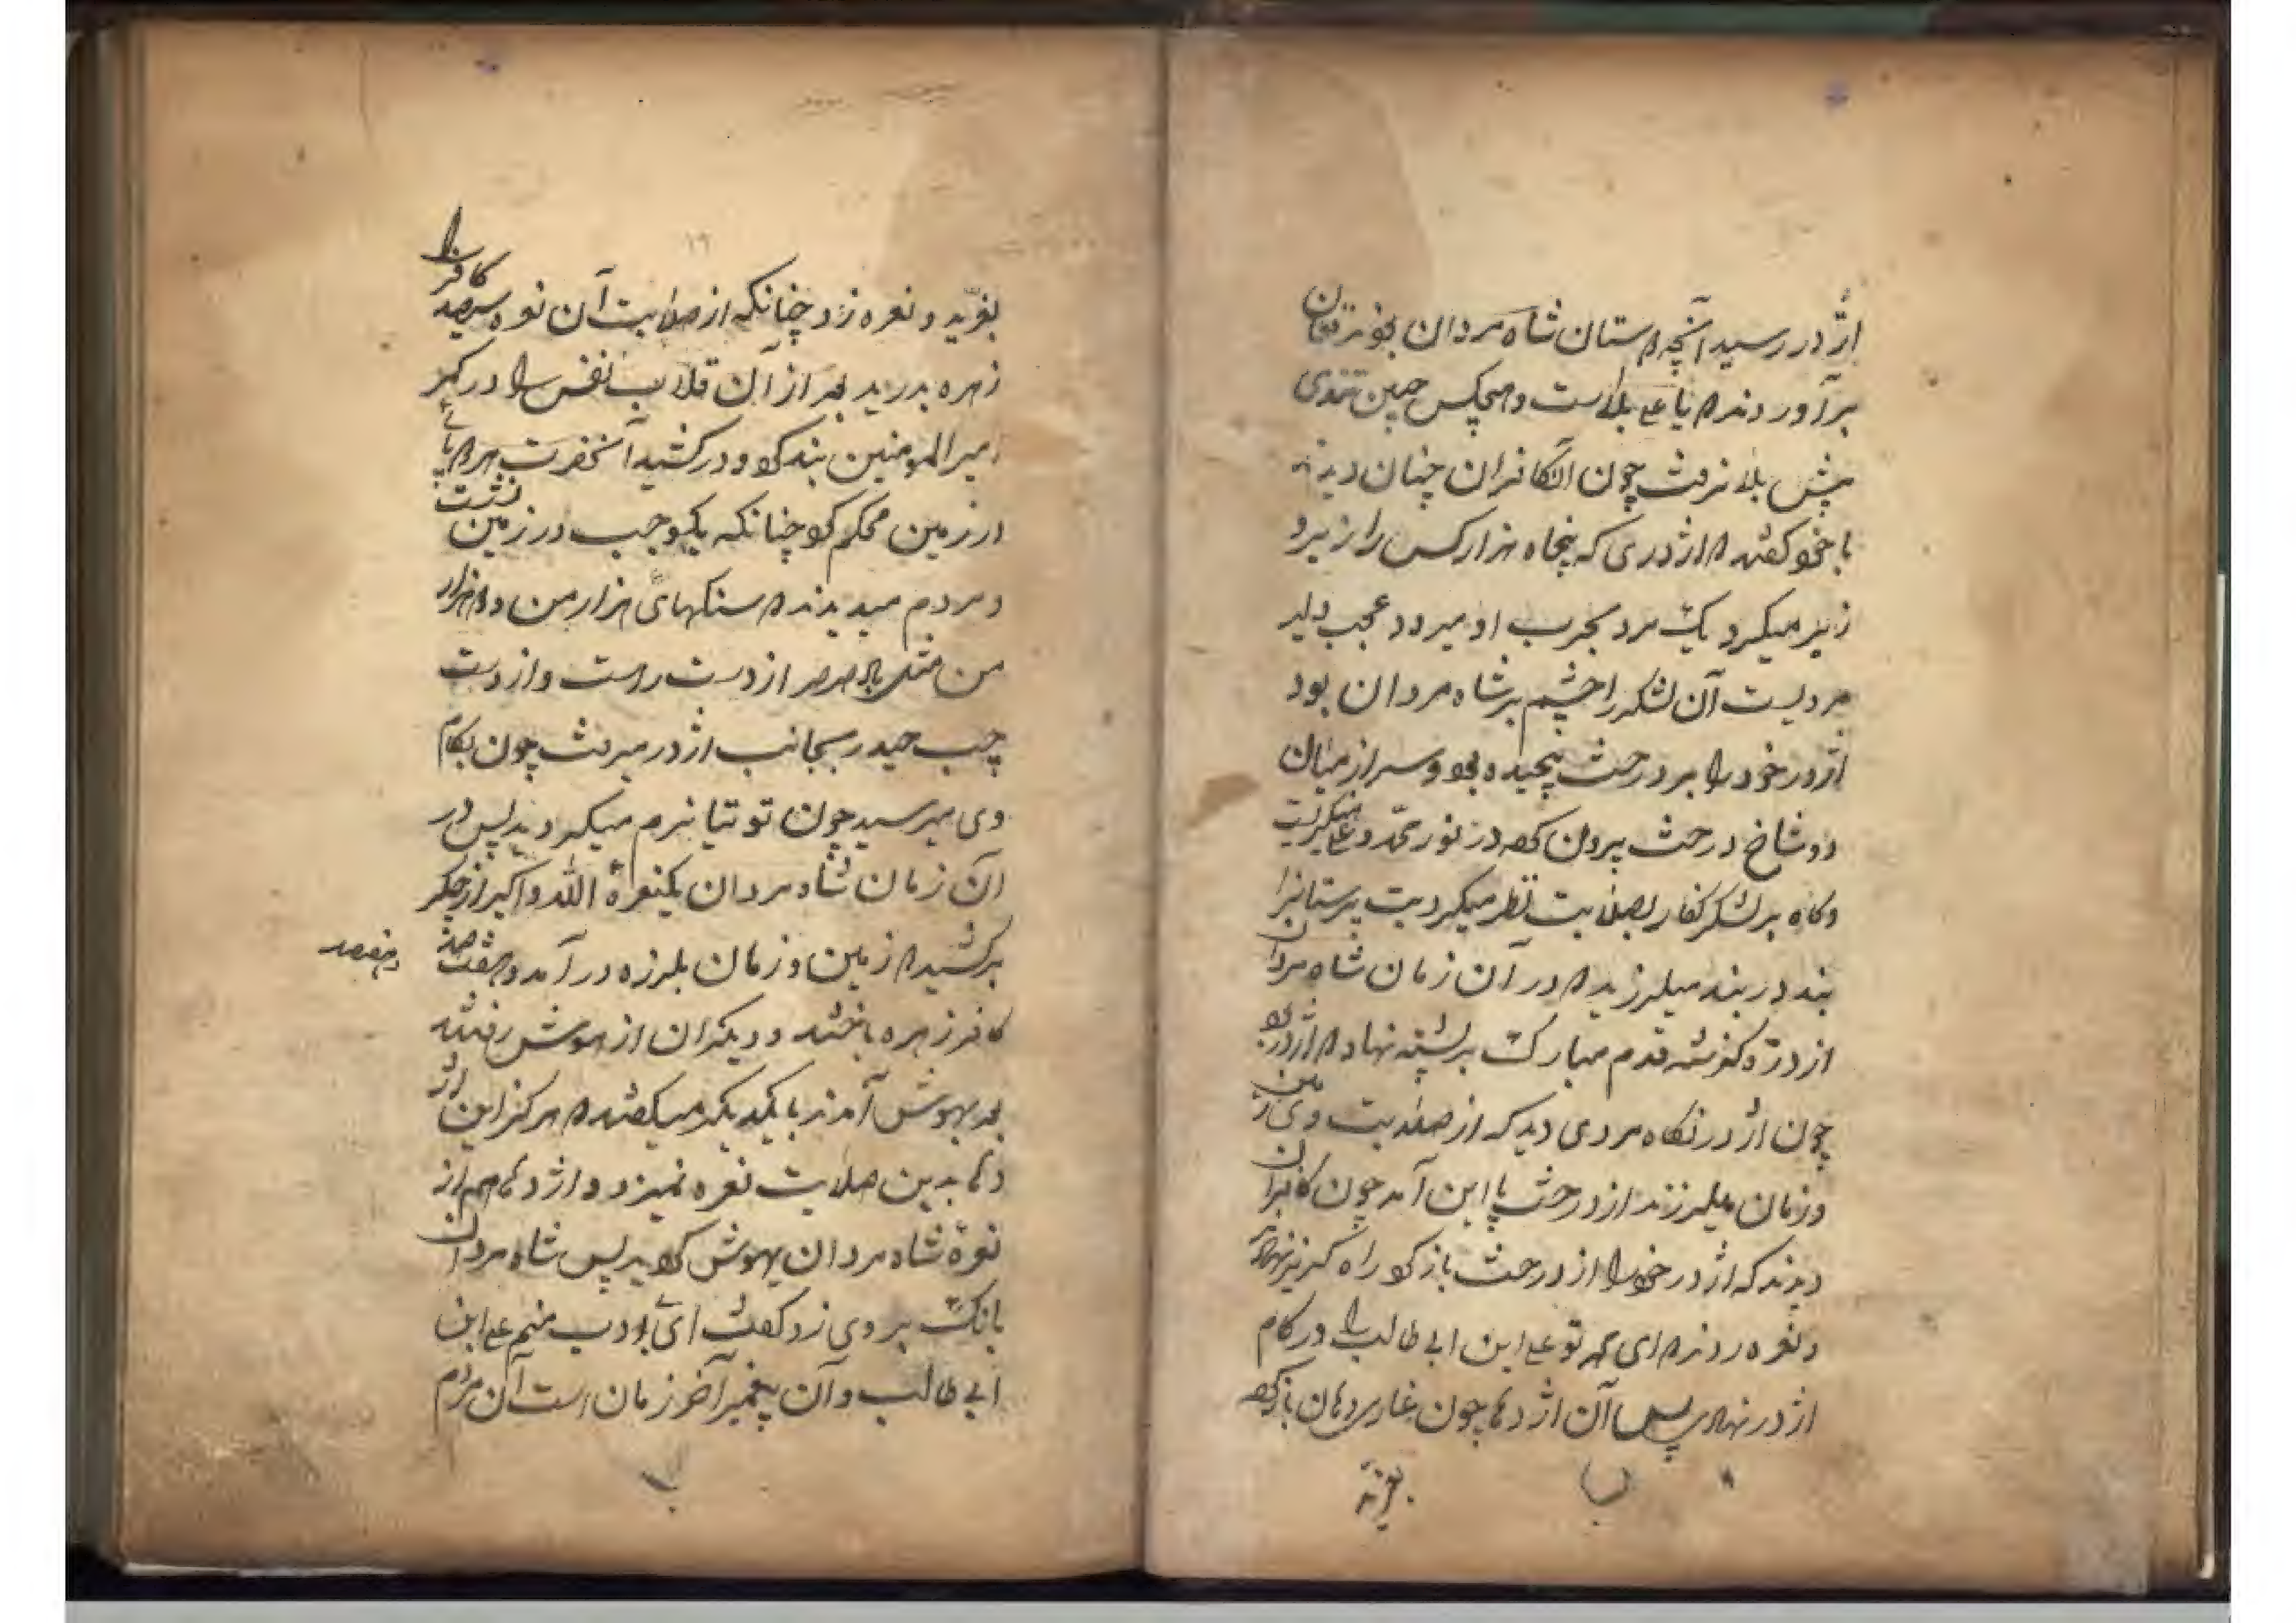 اژدر رسید آنچه دوستان شاه مردان بودند فغان
برآوردند که یا علی بلاست و هیچکس چنین تندی
پیش بلا نرفت چون آن کافران چنان دیدند
با خود گفتند که اژدری که پنجاه هزار کس را زیر و
زبر میکرد یک مرد بحرب او میرود عجب دلیر
مردیست آن لشکر را چشم بر شاه مردان بود
اژدر خود را بر درخت پیچیده بود و سر از میان
دو شاخ درخت بیرون کرده در نور محمد و علی میگریست
و گاه بر لشکر کفار بصلابت نظر میکرد بت پرستانرا
بند در بند میلرزید که در آن زمان شاه مردان
از دره گذشته قدم مبارک بر پشته نهاد که اژدر بود
چون اژدر نگاه مردی دید که از صلابت وی زمین
و زمان میلرزند از درخت پا این آمد چون کافران
دیدند که اژدر خود را از درخت باز کرد راه گریز نهاد
و نعره زدند که ای مهر تو علی ابن ابی طالب را در کام
اژدر نهاد پس آن اژدها چون غاری دهان باز کرد
بغرید
۱۶
بغرید و نعره زد چنانکه از صلابت آن نعره سیصد کافر را
زهره بدرید بعد از آن قلاب نفس را در کمر
امیر المومنین بند کرد و در کشید آنحضرت هر دو پای
در زمین محکم کرد چنانکه یکوجب در زمین نشست
و مردم میدیدند که سنگهای هزار من و دو هزار
من مثل باد صرصر از دست راست و از دست
چپ حیدر بجانب اژدر میرفت چون بکام
وی میرسید چون توتیا نرم میگردید پس در
آن زمان شاه مردان یکنعرهٔ الله و اکبر از جگر
برکشید که زمین و زمان بلرزه در آمد و هفتصد
و هفتصد
کافر زهره باختند و دیگران از هوش رفتند
بعد بهوش آمدند با یکدیگر میگفتند که هرگز این اژ
دها بدین صلابت نعره نمیزد و اژدها هم از
نعرهٔ شاه مردان بیهوش گردید پس شاه مردان
بانگ بر وی زد گفت ای بی ادب منم علی ابن
ابی طالب و آن پیغمبر آخر زمان است آن مردم